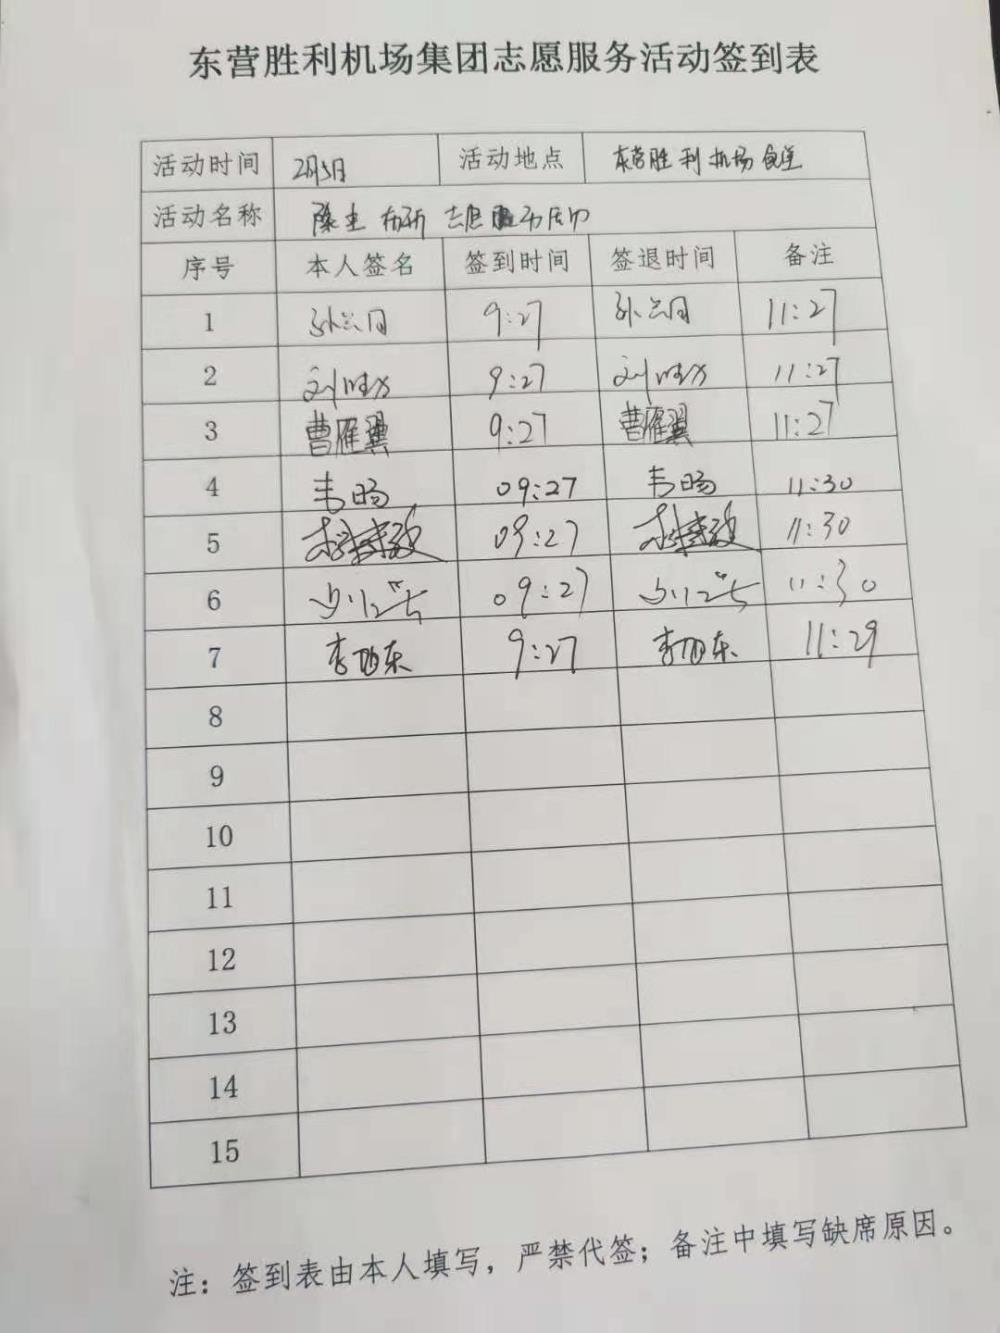 东营胜利机场集团志愿服务活动签到表
活动时间 2月5日 活动地点 东营胜利机场食堂
活动名称 除尘布新 志愿服务活动
序号 本人签名 签到时间 签退时间 备注
1 9:27 11:27
2 9:27 11:27
3 曹雁翼 9:27 曹雁翼 11:27
4 韦旸 09:27 韦旸 11:30
5 09:27 11:30
6 09:27 11:30
7 李旭东 9:27 李旭东 11:29
8
9
10
11
12
13
14
15
注：签到表由本人填写，严禁代签；备注中填写缺席原因。